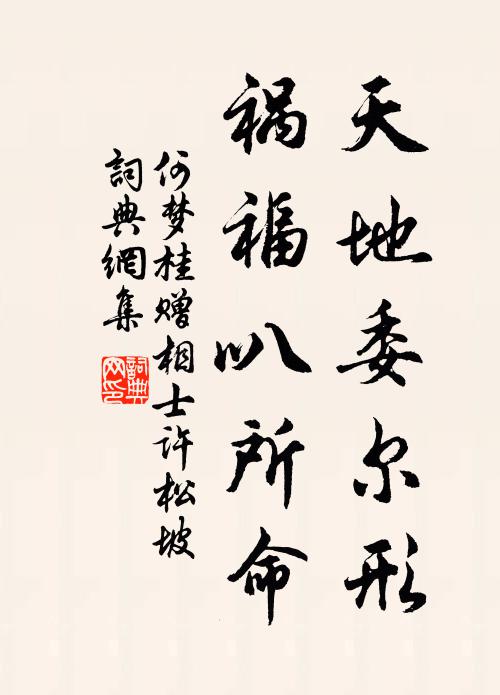 天地委尔形
祸福叭所命
何梦桂赠相士许松坡
詞典網集
詞典网印